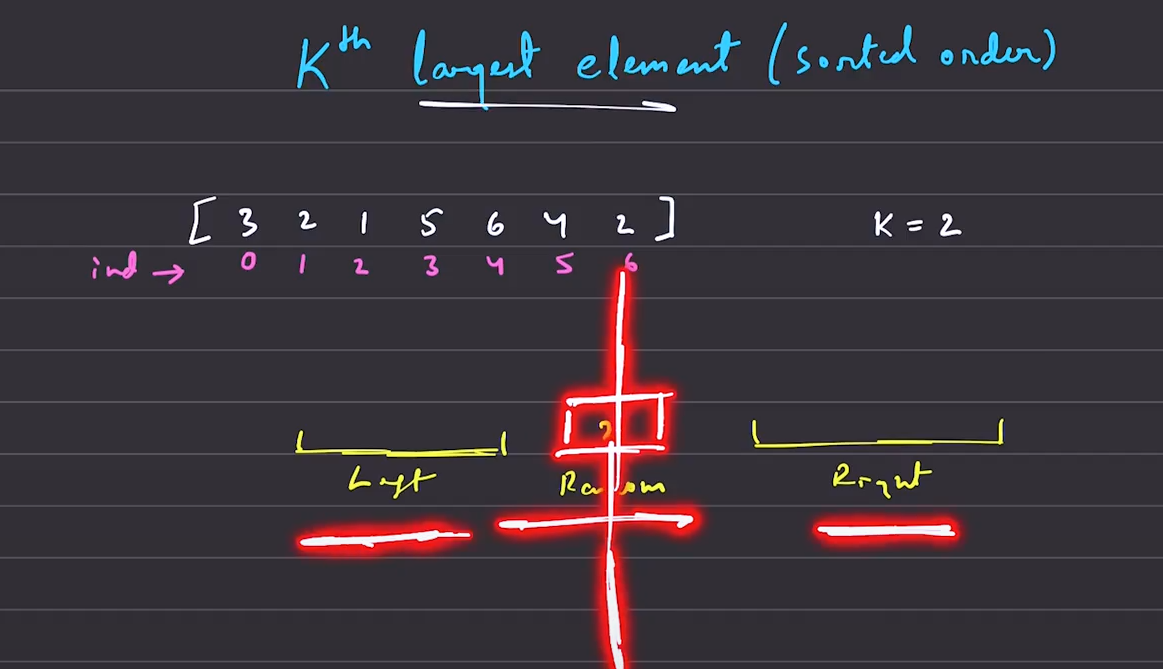 Kth largest element (sorted order)
[ 3 2 1 5 6 4 2 ] K = 2
ind → 0 1 2 3 4 5 6
Left Random Right